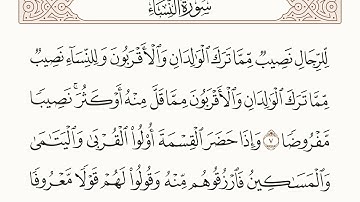 سُورَةُ النِّسَاءِ
لِّلرِّجَالِ نَصِيبٌ مِّمَّا تَرَكَ ٱلْوَٰلِدَانِ وَٱلْأَقْرَبُونَ وَلِلنِّسَآءِ نَصِيبٌ
مِّمَّا تَرَكَ ٱلْوَٰلِدَانِ وَٱلْأَقْرَبُونَ مِمَّا قَلَّ مِنْهُ أَوْ كَثُرَ ۚ نَصِيبًا
مَّفْرُوضًا ٧ وَإِذَا حَضَرَ ٱلْقِسْمَةَ أُو۟لُوا۟ ٱلْقُرْبَىٰ وَٱلْيَتَٰمَىٰ
وَٱلْمَسَٰكِينُ فَٱرْزُقُوهُم مِّنْهُ وَقُولُوا۟ لَهُمْ قَوْلًا مَّعْرُوفًا